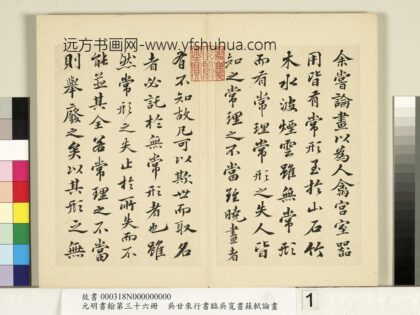 远方书画网-www.yfshuhua.com
余嘗論畫以為人禽宮室器
用皆有常形至於山石竹
木水波煙雲雖無常形
而有常理常形之失人皆
知之常理之不當雖曉畫者
有不知故凡可以欺世而取名
者必託於無常形者也雖
然常形之失止於所失而不
能病其全若常理之不當
則舉廢之矣以其形之無
故書 000318N000000000
元明書翰第三十六冊 吳甘來行書臨吳寬書蘇軾論畫
1